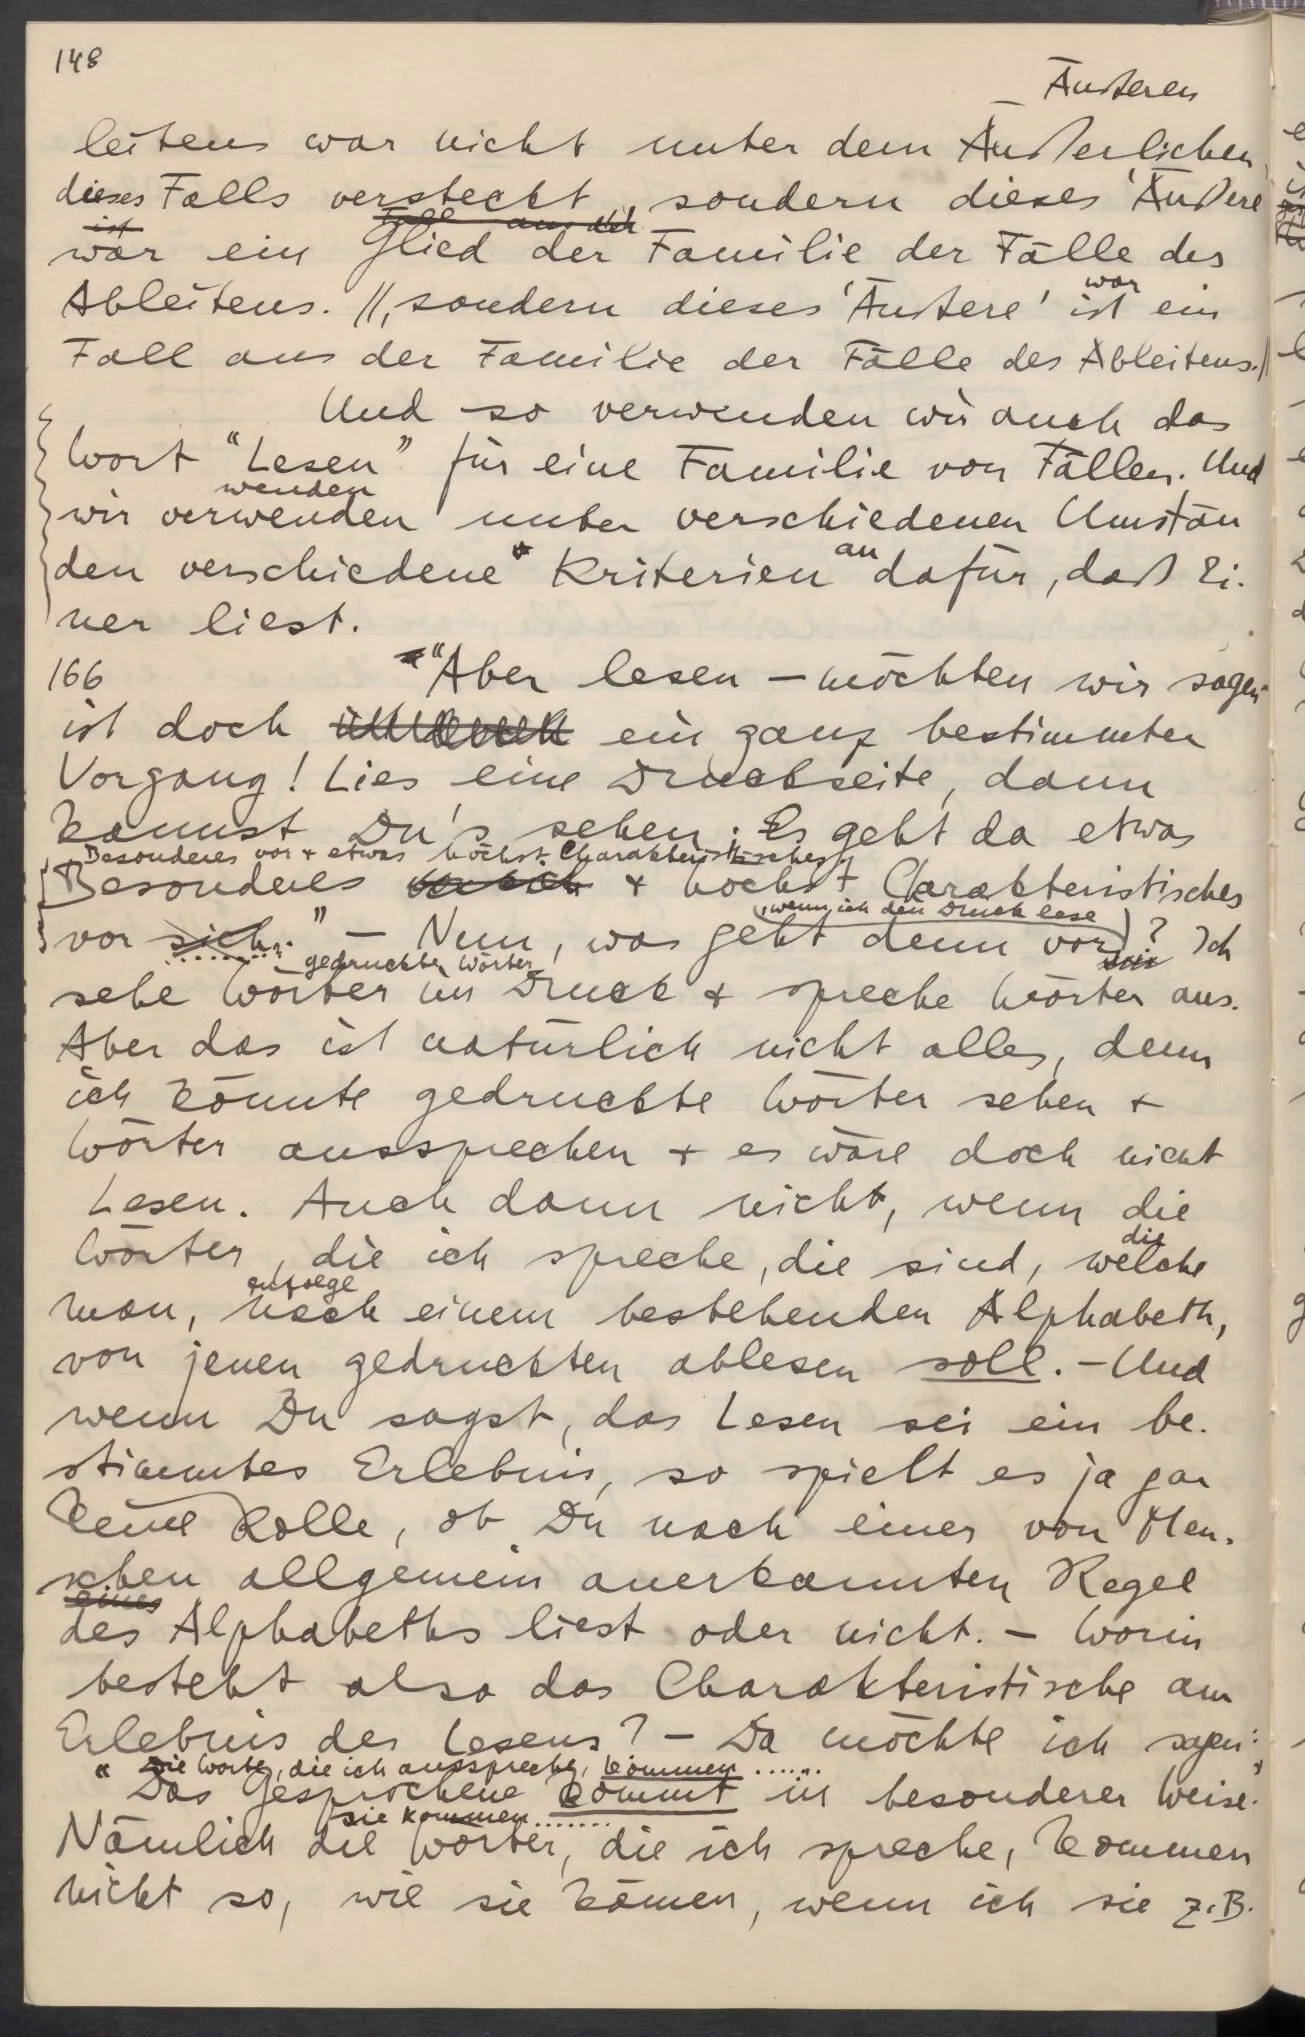 148
Äußeren
leitens war nicht unter dem Äußerlichen
dieses Falls versteckt, sondern dieses 'Äußere'
ist Fall aus der
war ein Glied der Familie der Fälle des
war
Ableitens. //, sondern dieses 'Äußere' ist ein
Fall aus der Familie der Fälle des Ableitens.//
Und so verwenden wir auch das
Wort “Lesen” für eine Familie von Fällen. Und
wenden
wir verwenden unter verschiedenen Umstän
an
den verschiedene Kriterien dafür, daß Ei-
ner liest.
166 “Aber lesen – möchten wir sagen –
ist doch ein ganz bestimmter
Vorgang! Lies eine Druckseite, dann
kannst Du's sehen; Es geht da etwas
Besonderes vor + etwas höchst Charakteristisches
Besonderes + höchst Charakteristisches
, wenn ich den Druck lese
vor sich.” – Nun, was geht denn vor? Ich
gedruckte Wörter
sehe Wörter im Druck + spreche Wörter aus.
Aber das ist natürlich nicht alles, denn
ich könnte gedruckte Wörter sehen +
Wörter aussprechen + es wäre doch nicht
Lesen. Auch dann nicht, wenn die
die
Wörter, die ich spreche, die sind, welche
zufolge
man, nach einem bestehenden Alphabeth,
von jenen gedruckten ablesen soll. – Und
wenn Du sagst, das Lesen sei ein be-
stimmtes Erlebnis, so spielt es ja gar
keine Rolle, ob Du nach einer von Men-
schen allgemein anerkannten Regel
eines
des Alphabeths liest oder nicht. – Worin
besteht also das Charakteristische am
Erlebnis des Lesens? – Da möchte ich sagen:
Die Worte, die ich ausspreche, kommen ......
“Das Gesprochene kommt in besonderer Weise.”
sie kommen .......
Nämlich die Wörter, die ich spreche, kommen
nicht so, wie sie kämen, wenn ich sie z.B.